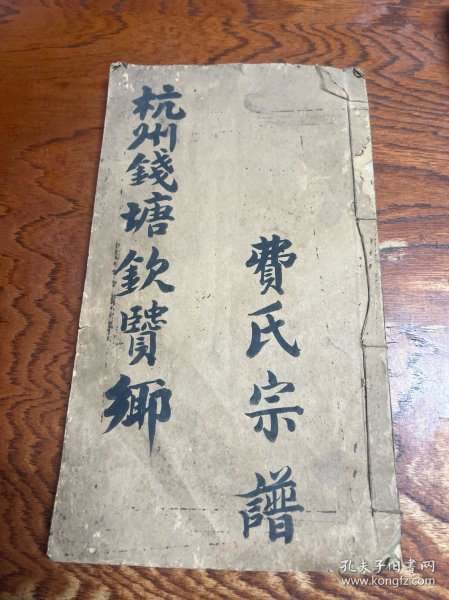 費氏宗譜
杭州錢塘欽賢鄉
孔夫子旧书网
www.kongfz.com